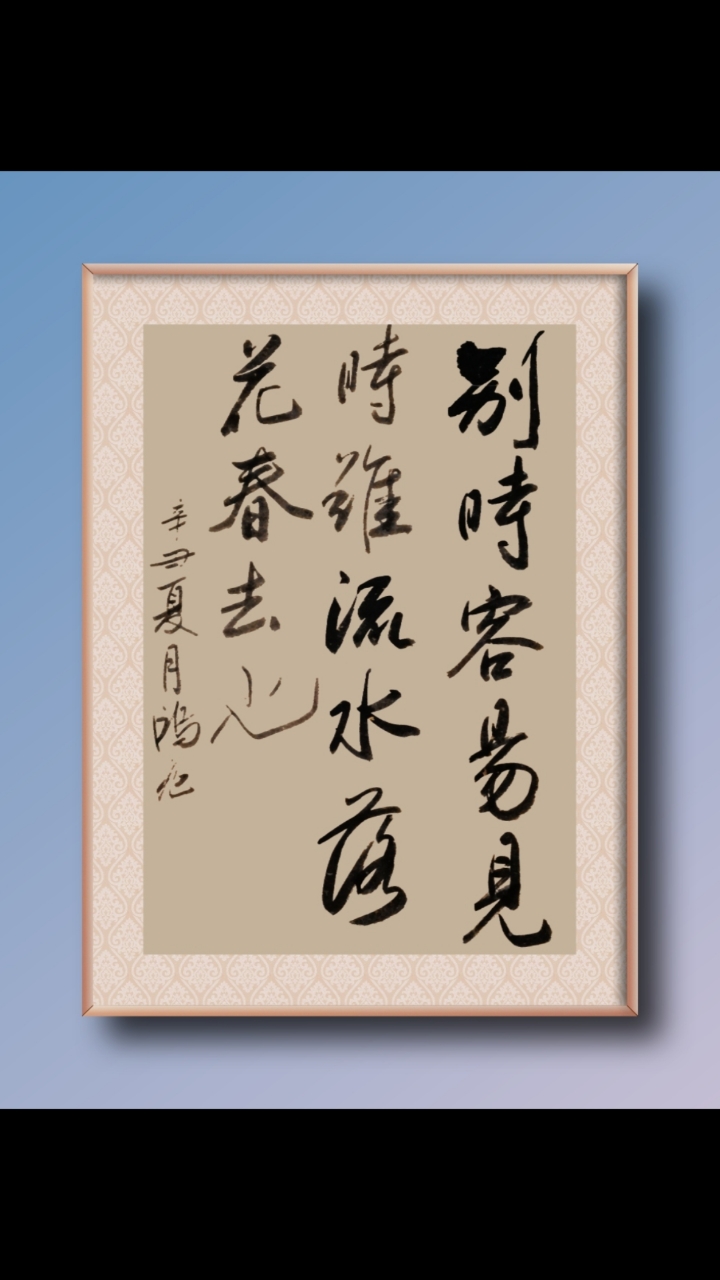 別時容易見
時難流水落
花春去也
辛丑夏月